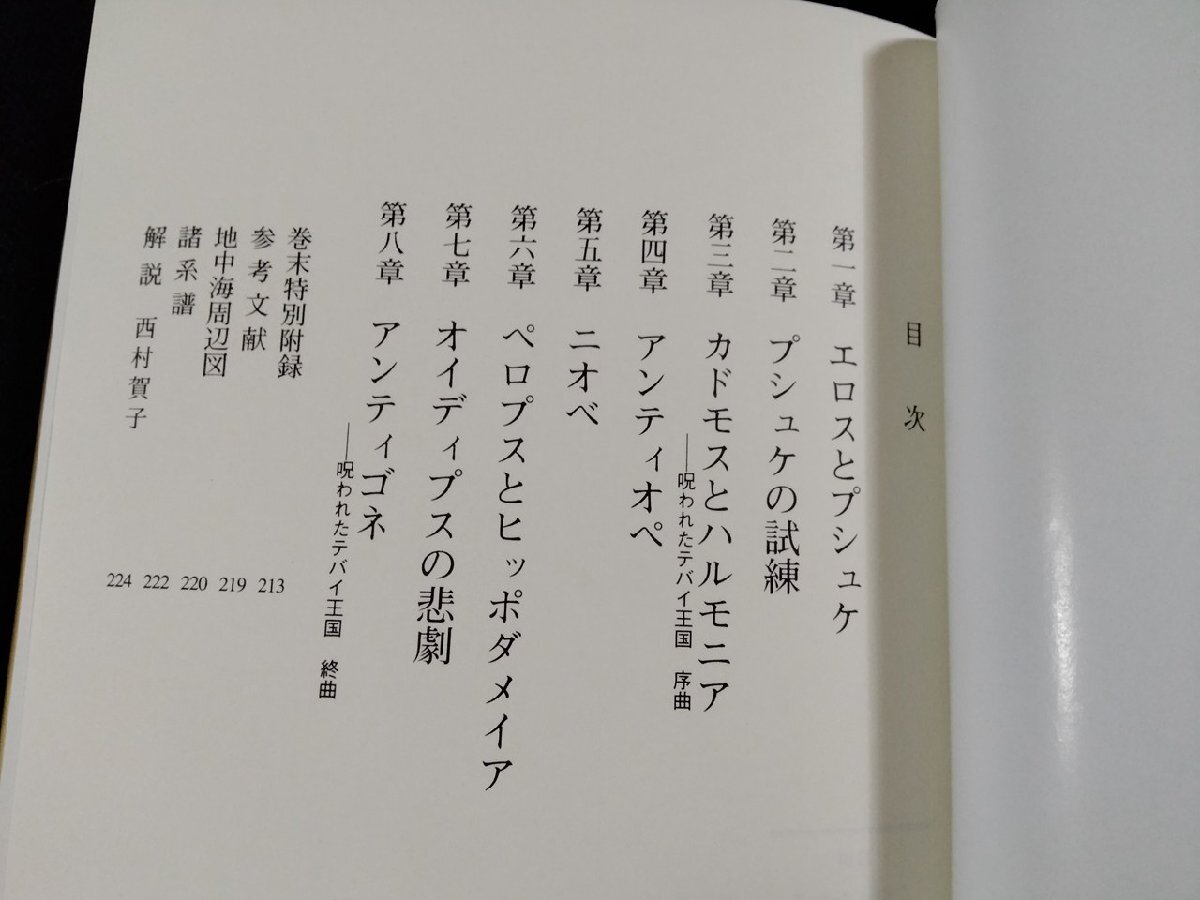 目次
第一章 エロスとプシュケ
第二章 プシュケの試練
第三章 カドモスとハルモニア
──呪われたテバイ王国 序曲
第四章 アンティオペ
第五章 ニオベ
第六章 ペロプスとヒッポダメイア
第七章 オイディプスの悲劇
第八章 アンティゴネ
──呪われたテバイ王国 終曲
巻末特別附録 213
参考文献 219
地中海周辺図 220
諸系譜 222
解説 西村賀子 224